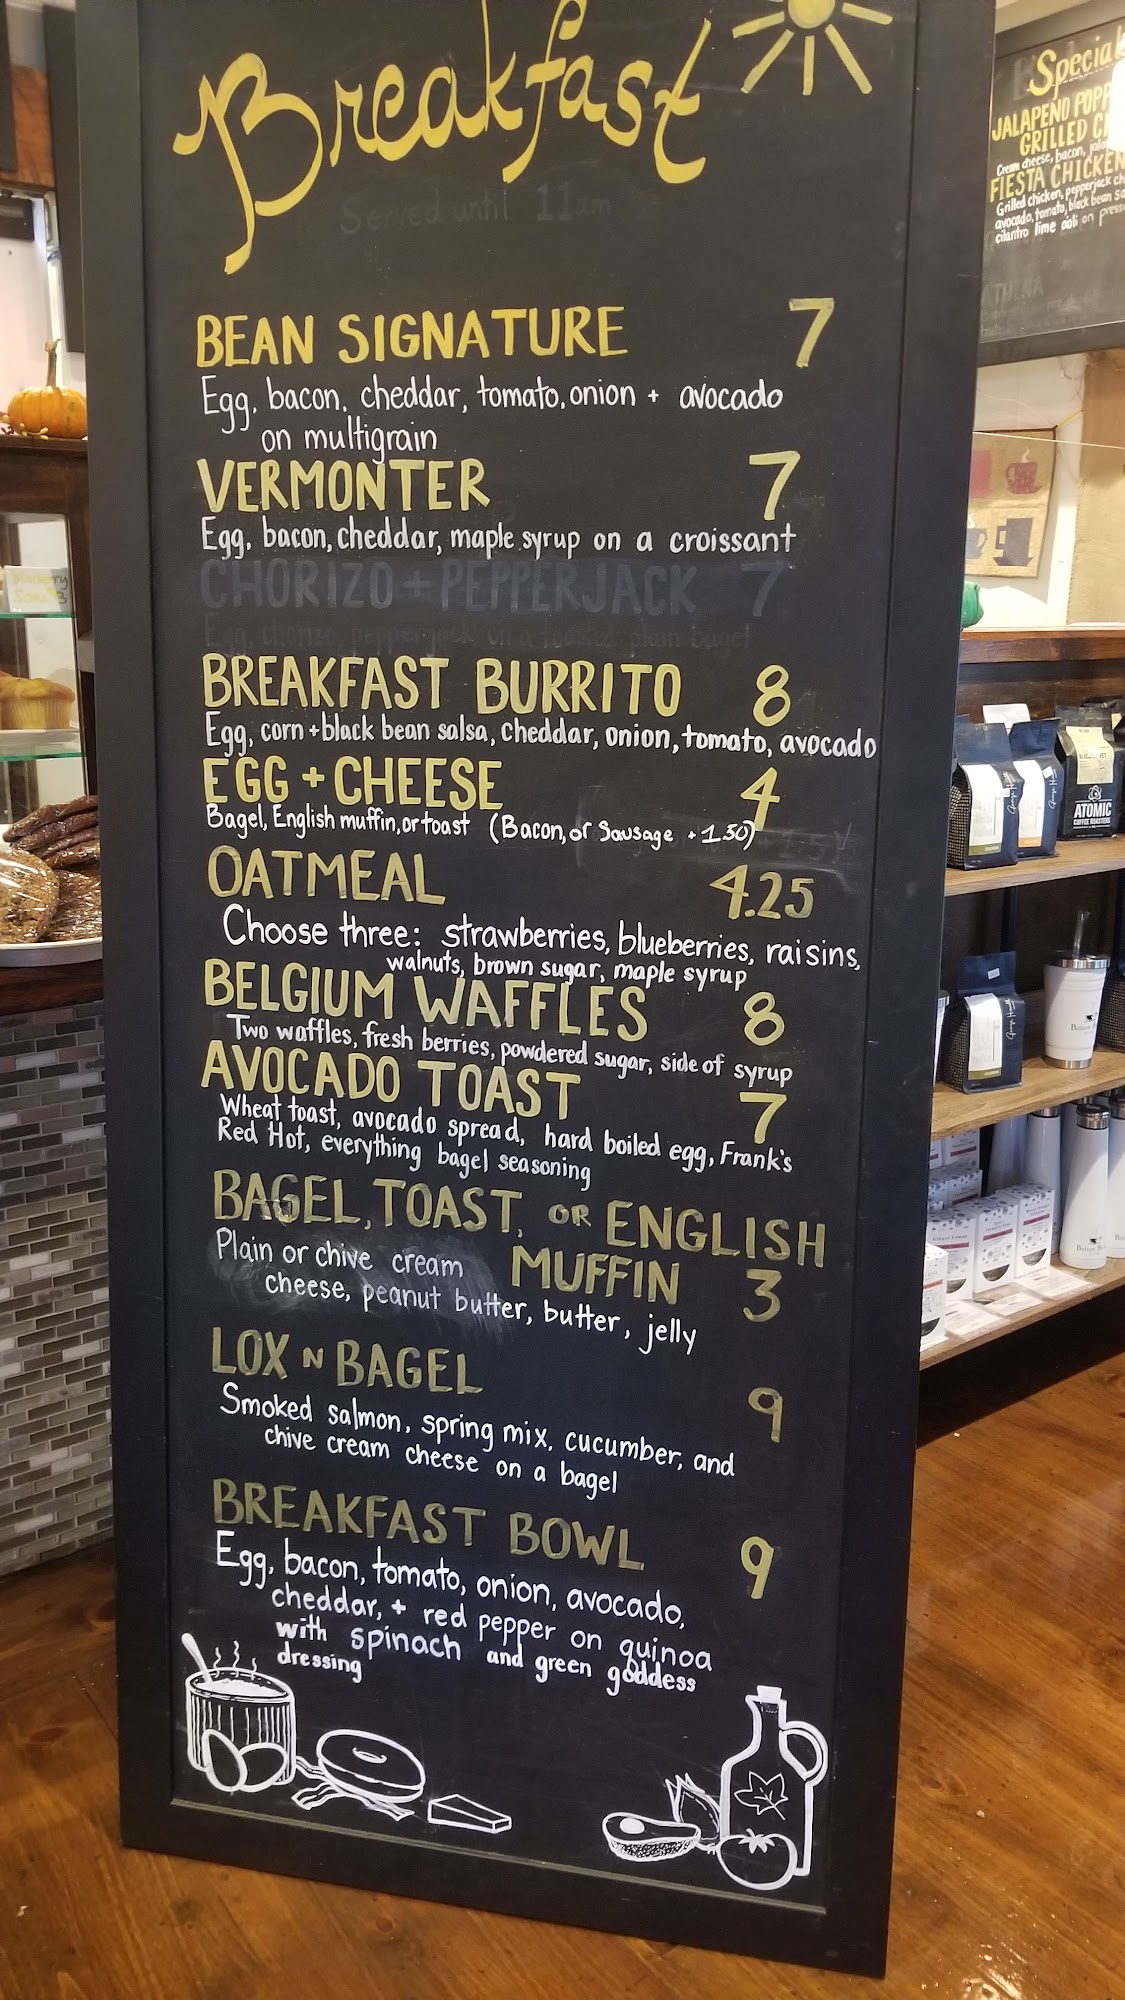 Breakfast
Served until 11am
BEAN SIGNATURE 7
Egg, bacon, cheddar, tomato, onion + avocado
on multigrain
VERMONTER 7
Egg, bacon, cheddar, maple syrup on a croissant
CHORIZO + PEPPERJACK 7
Egg, chorizo, pepperjack on a toasted plain bagel
BREAKFAST BURRITO 8
Egg, corn + black bean salsa, cheddar, onion, tomato, avocado
EGG + CHEESE 4
Bagel, English muffin, or toast (Bacon, or Sausage +1.50)
OATMEAL 4.25
Choose three: strawberries, blueberries, raisins,
walnuts, brown sugar, maple syrup
BELGIUM WAFFLES 8
Two waffles, fresh berries, powdered sugar, side of syrup
AVOCADO TOAST 7
Wheat toast, avocado spread, hard boiled egg, Frank's
Red Hot, everything bagel seasoning
BAGEL, TOAST, OR ENGLISH
MUFFIN 3
Plain or chive cream
cheese, peanut butter, butter, jelly
LOX N BAGEL 9
Smoked salmon, spring mix, cucumber, and
chive cream cheese on a bagel
BREAKFAST BOWL 9
Egg, bacon, tomato, onion, avocado,
cheddar, + red pepper on quinoa
with spinach and green goddess
dressing
Special
JALAPEÑO POPP
GRILLED C
Cream cheese, bacon, jala
FIESTA CHICKEN
Grilled chicken, pepperjack ch
avocado, tomato, black bean sa
cilantro lime aioli on press
ATOMIC
COFFEE ROASTERS